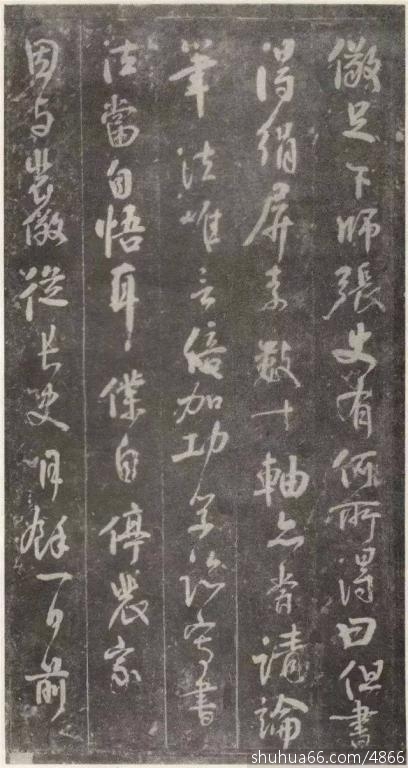 儆足下師張史有何所得曰但書
得絹屏素數十軸亦嘗請論
筆法唯言倍加功學臨寫書
法當自悟耳僕自停裴家
因与裴儆從長史餘一日前
shuhua66.com/4866